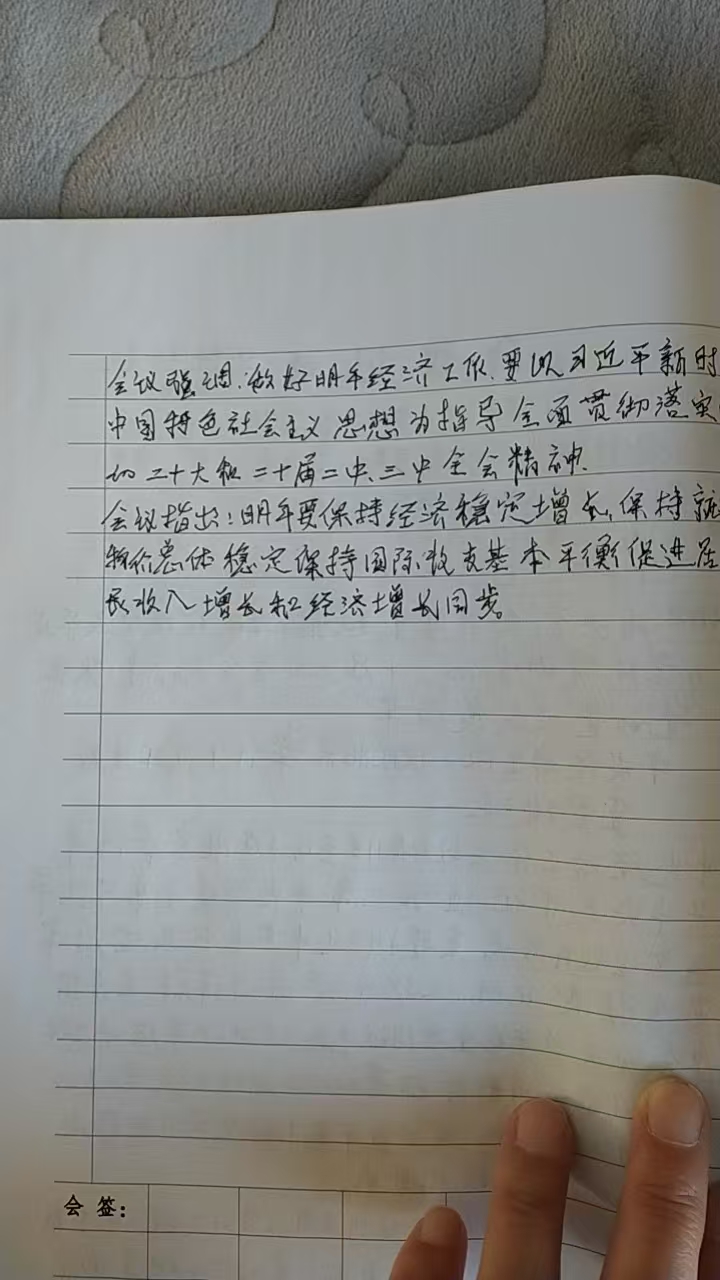 会议强调.做好明年经济工作.要以习近平新时
中国特色社会主义思想为指导全面贯彻落实
的二十大和二十届二中、三中全会精神.
会议指出:明年要保持经济稳定增长.保持就
物价总体稳定保持国际收支基本平衡促进居
民收入增长和经济增长同步。
会签: